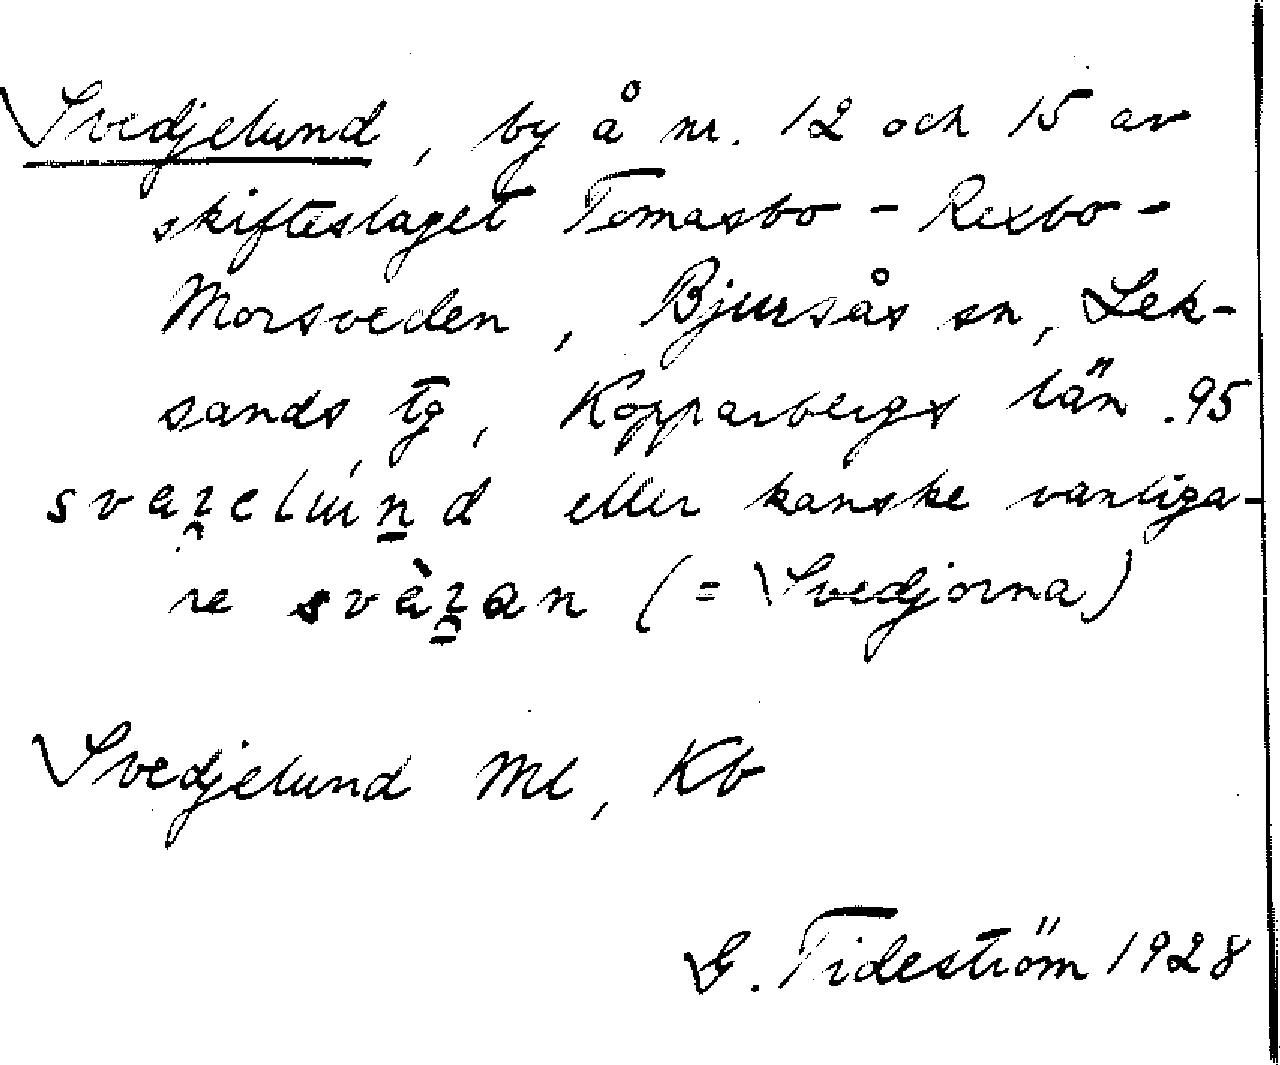 Svedjelund, by å nr. 12 och 15 av
skifteslaget Tomasbo - Rexbo -
Morsveden, Bjursås sn, Lek-
sands tg, Kopparbergs län. 95
eller kanske vanliga-
re (= Svedjorna)
Svedjelund Ml, Kb
G. Tideström 1928